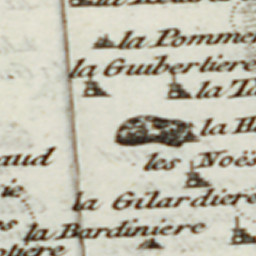 la Pomme
la Guibertiere
la T
la H
aud
les Noës
ie
la Gilardiere
la Bardiniere
otiere